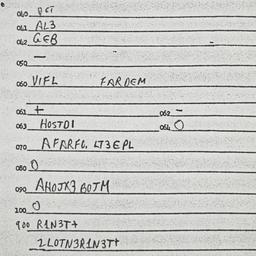 040 PCT
041 AL3
042 GEB
050 —
060 VIFL FARDEM
061 + 062 -
063 HOSTDI 064 O
070 AFARFL LT3EPL
080 O
090 AHOJX3 BOTM
100 O
900 R1N3T+
2LOTN3R1N3T+